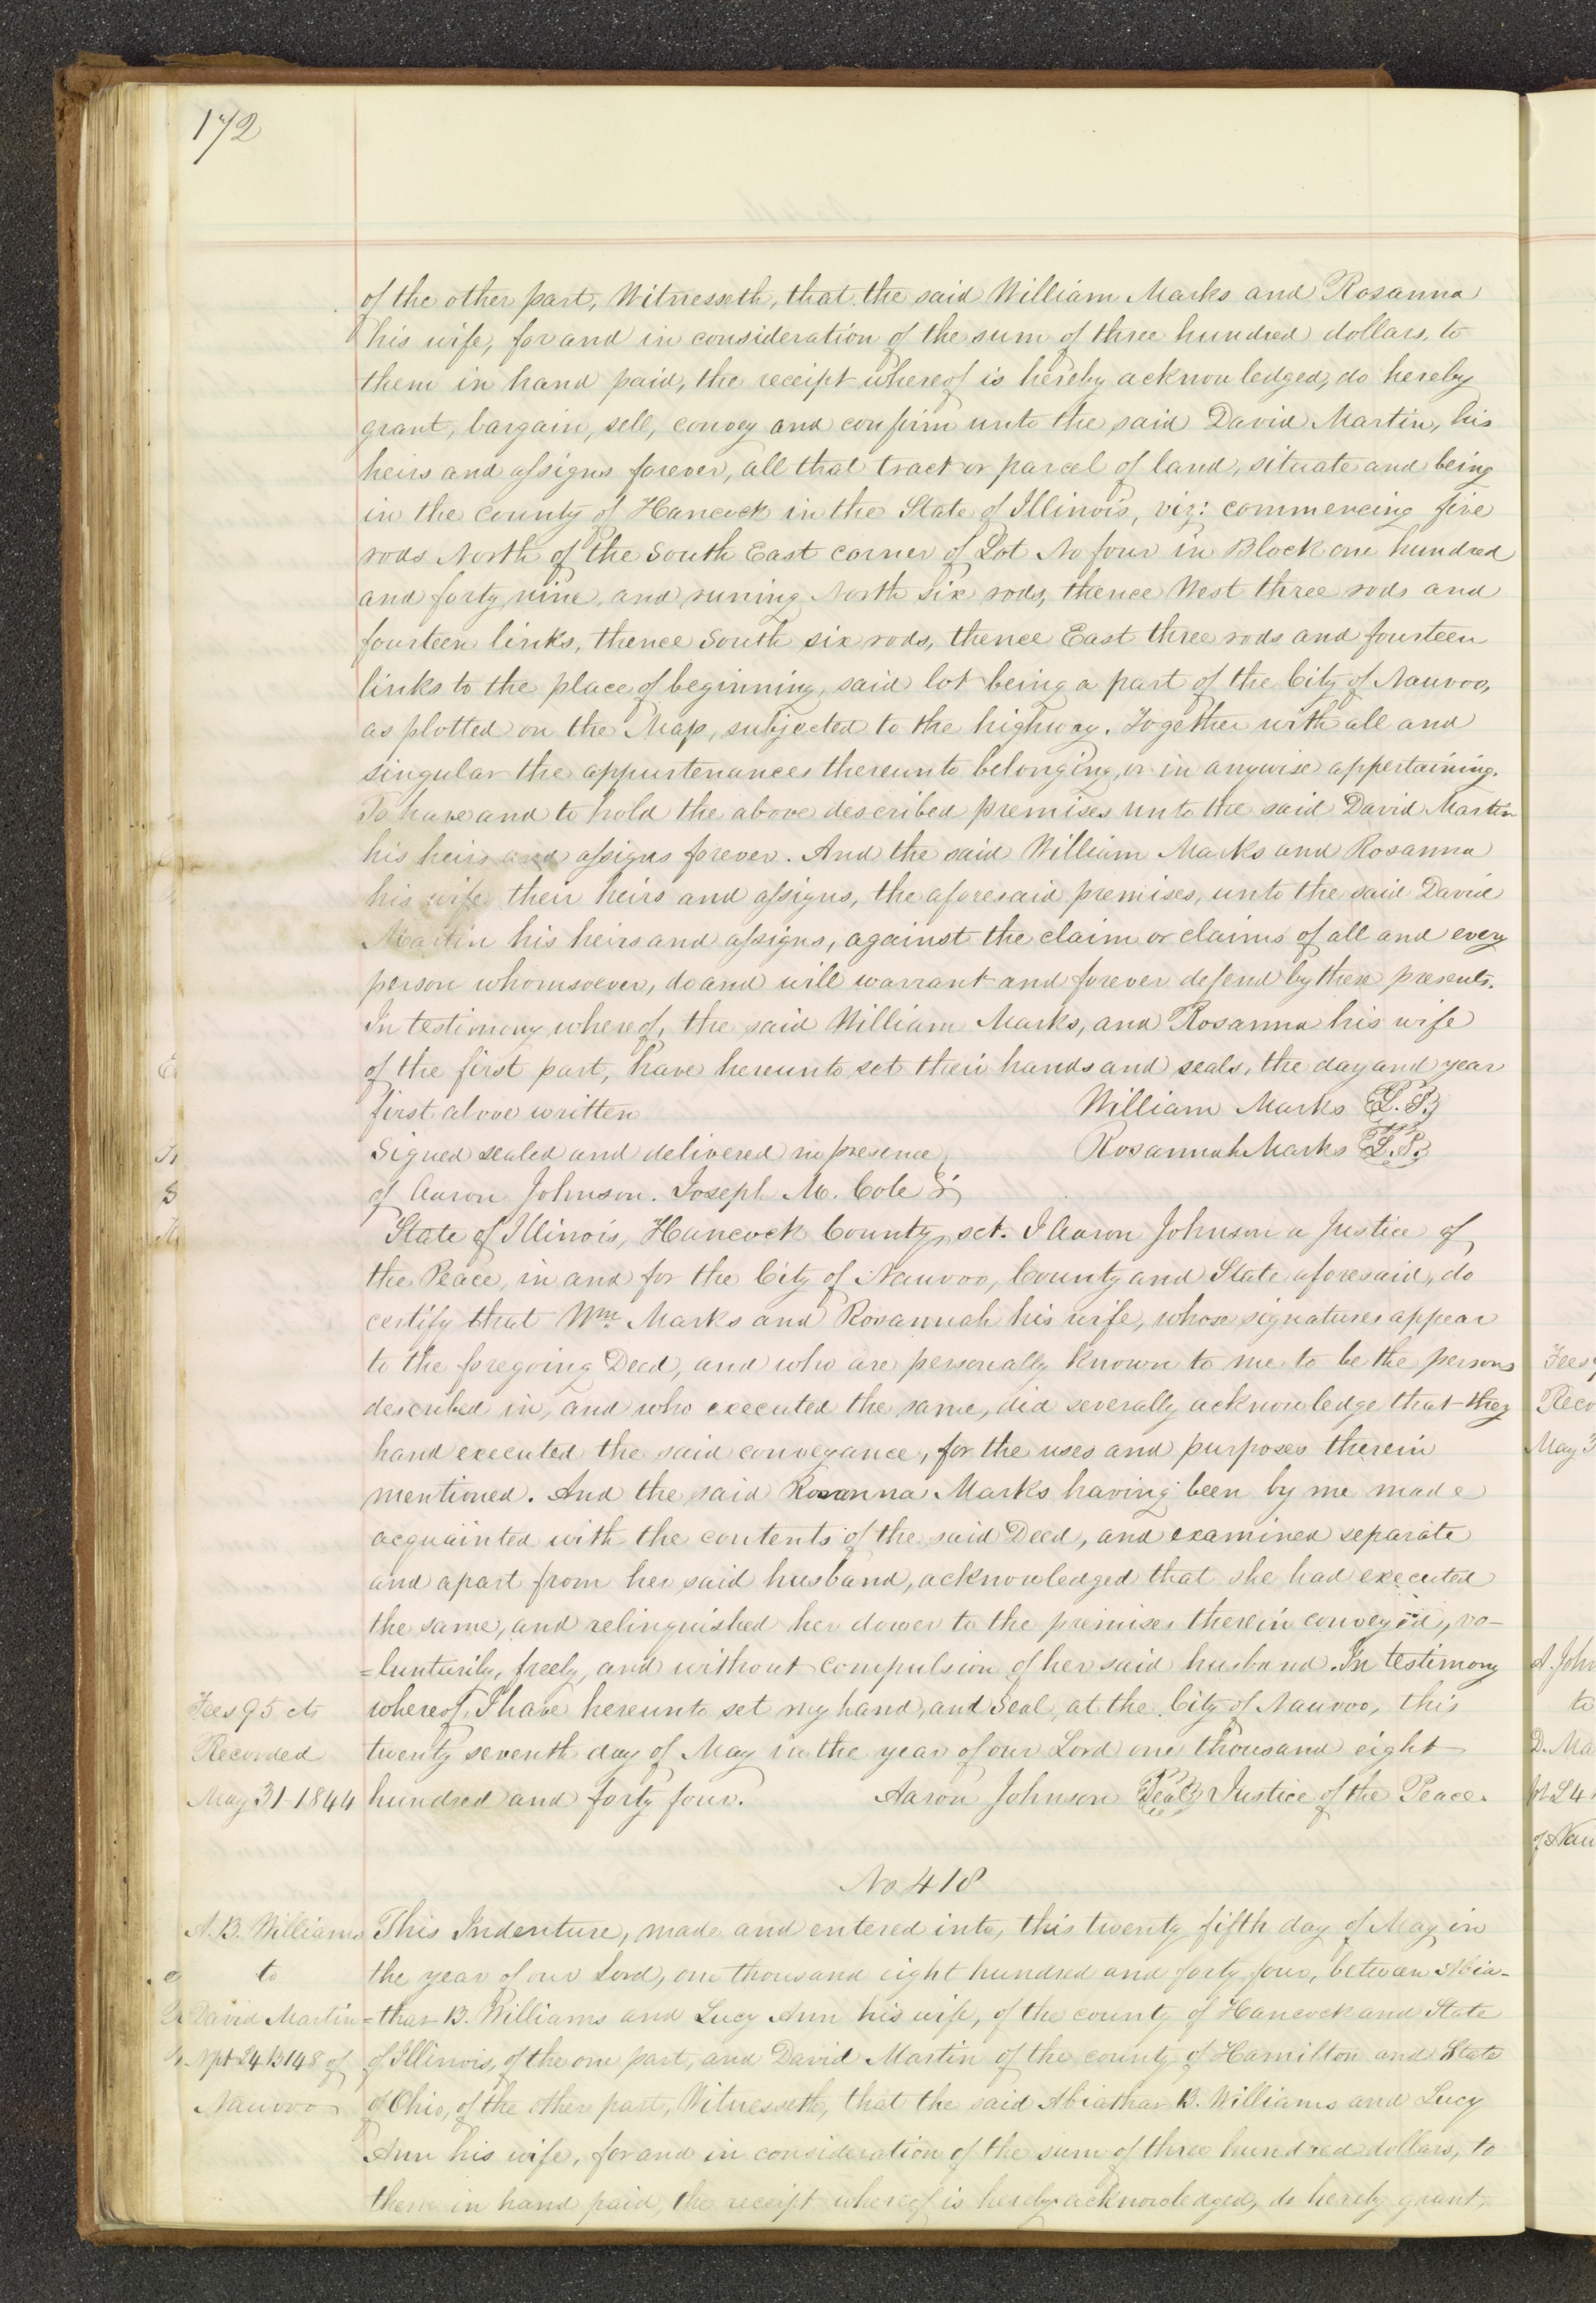 172
of the other part, Witnesseth, that the said William Marks and Rosanna
his wife, for and in consideration of the sum of three hundred dollars, to
them in hand paid, the receipt whereof is hereby acknowledged, do hereby
grant, bargain, sell, convey and confirm unto the said David Martin, his
heirs and assigns forever, all that tract or parcel of land, situate and being
in the county of Hancock in the State of Illinois, viz: commencing five
rods North of the South East corner of Lot No four in Block one hundred
and forty nine, and runing North six rods, thence West three rods and
fourteen links, thence South six rods, thence East three rods and fourteen
links to the place of beginning, said lot being a part of the City of Nauvoo,
as plotted on the Map, subjected to the highway. Together with all and
singular the appurtenances thereunto belonging, or in anywise appertaining.
To have and to hold the above described premises unto the said David Martin
his heirs and assigns forever. And the said William Marks and Rosanna
his wife their heirs and assigns, the aforesaid premises, unto the said David
Martin his heirs and assigns, against the claim or claims of all and every
person whomsoever, do and will warrant and forever defend by these presents.
In testimony whereof, the said William Marks, and Rosanna his wife
of the first part, have hereunto set their hands and seals, the day and year
first above written William Marks L.S.
Signed sealed and delivered in presence Rosannah Marks L.S.
of Aaron Johnson. Joseph M. Cole
State of Illinois, Hancock County, sct. I Aaron Johnson a Justice of
the Peace, in and for the City of Nauvoo, County and State aforesaid, do
certify that Wm. Marks and Rosannah his wife, whose signatures appear
to the foregoing Deed, and who are personally known to me to be the persons
described in, and who executed the same, did severally acknowledge that they
hand executed the said conveyance, for the uses and purposes therein
mentioned. And the said Rosanna Marks having been by me made
acquainted with the contents of the said Deed, and examined separate
and apart from her said husband, acknowledged that she had executed
the same, and relinquished her dower to the premises therein conveyed, vo-
=lunturily, freely, and without compulsion of her said husband. In testimony
Fees 95 cts whereof, I have hereunto set my hand, and Seal, at the City of Nauvoo, this
Recorded twenty seventh day of May in the year of our Lord one thousand eight
May 31-1844 hundred and forty four. Aaron Johnson Seal Justice of the Peace.
No 418
A. B. Williams This Indenture, made and entered into, this twenty fifth day of May in
to the year of our Lord, one thousand eight hundred and forty four, between Abia-
David Martin =thar B. Williams and Lucy Ann his wife, of the county of Hancock and State
Npt L4 B148 of of Illinois, of the one part, and David Martin of the county of Hamilton and State
Nauvoo of Ohio, of the other part, Witnesseth, that the said Abiathar B. Williams and Lucy
Ann his wife, for and in consideration of the sum of three hundred dollars, to
them in hand paid, the receipt whereof is hereby acknowledged, do hereby grant,
Fees
Reco
May 3
A. John
to
D. Ma
pt L4
of Nau